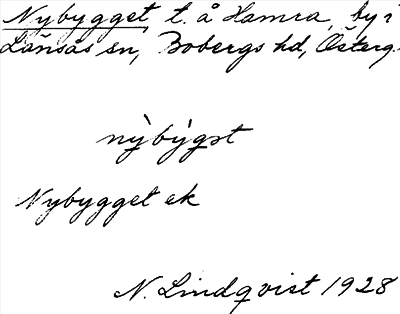 Nybygget, t. å Hamra, by i
Lönsås sn, Bobergs hd, Österg.
nỳbỳgət
Nybygget ek
N. Lindqvist 1928